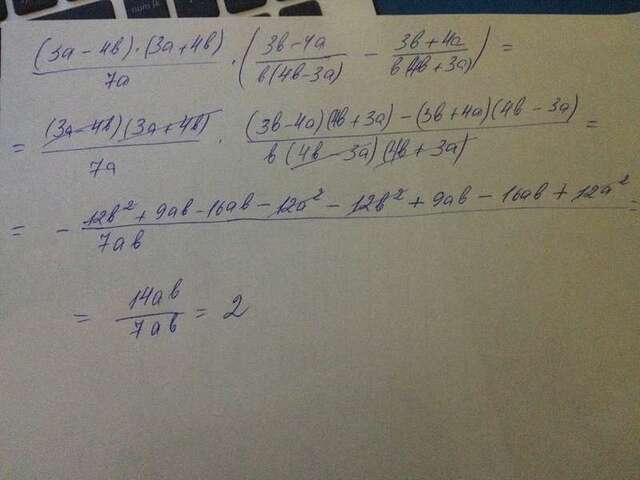 (3a-4b)·(3a+4b)/7a · (3b-4a/b(4b-3a) - 3b+4a/b(4b+3a)) =
= (3a-4b)(3a+4b)/7a · (3b-4a)(4b+3a)-(3b+4a)(4b-3a)/b(4b-3a)(4b+3a) =
= - 12b²+9ab-16ab-12a²-12b²+9ab-16ab+12a²/7ab =
= 14ab/7ab = 2